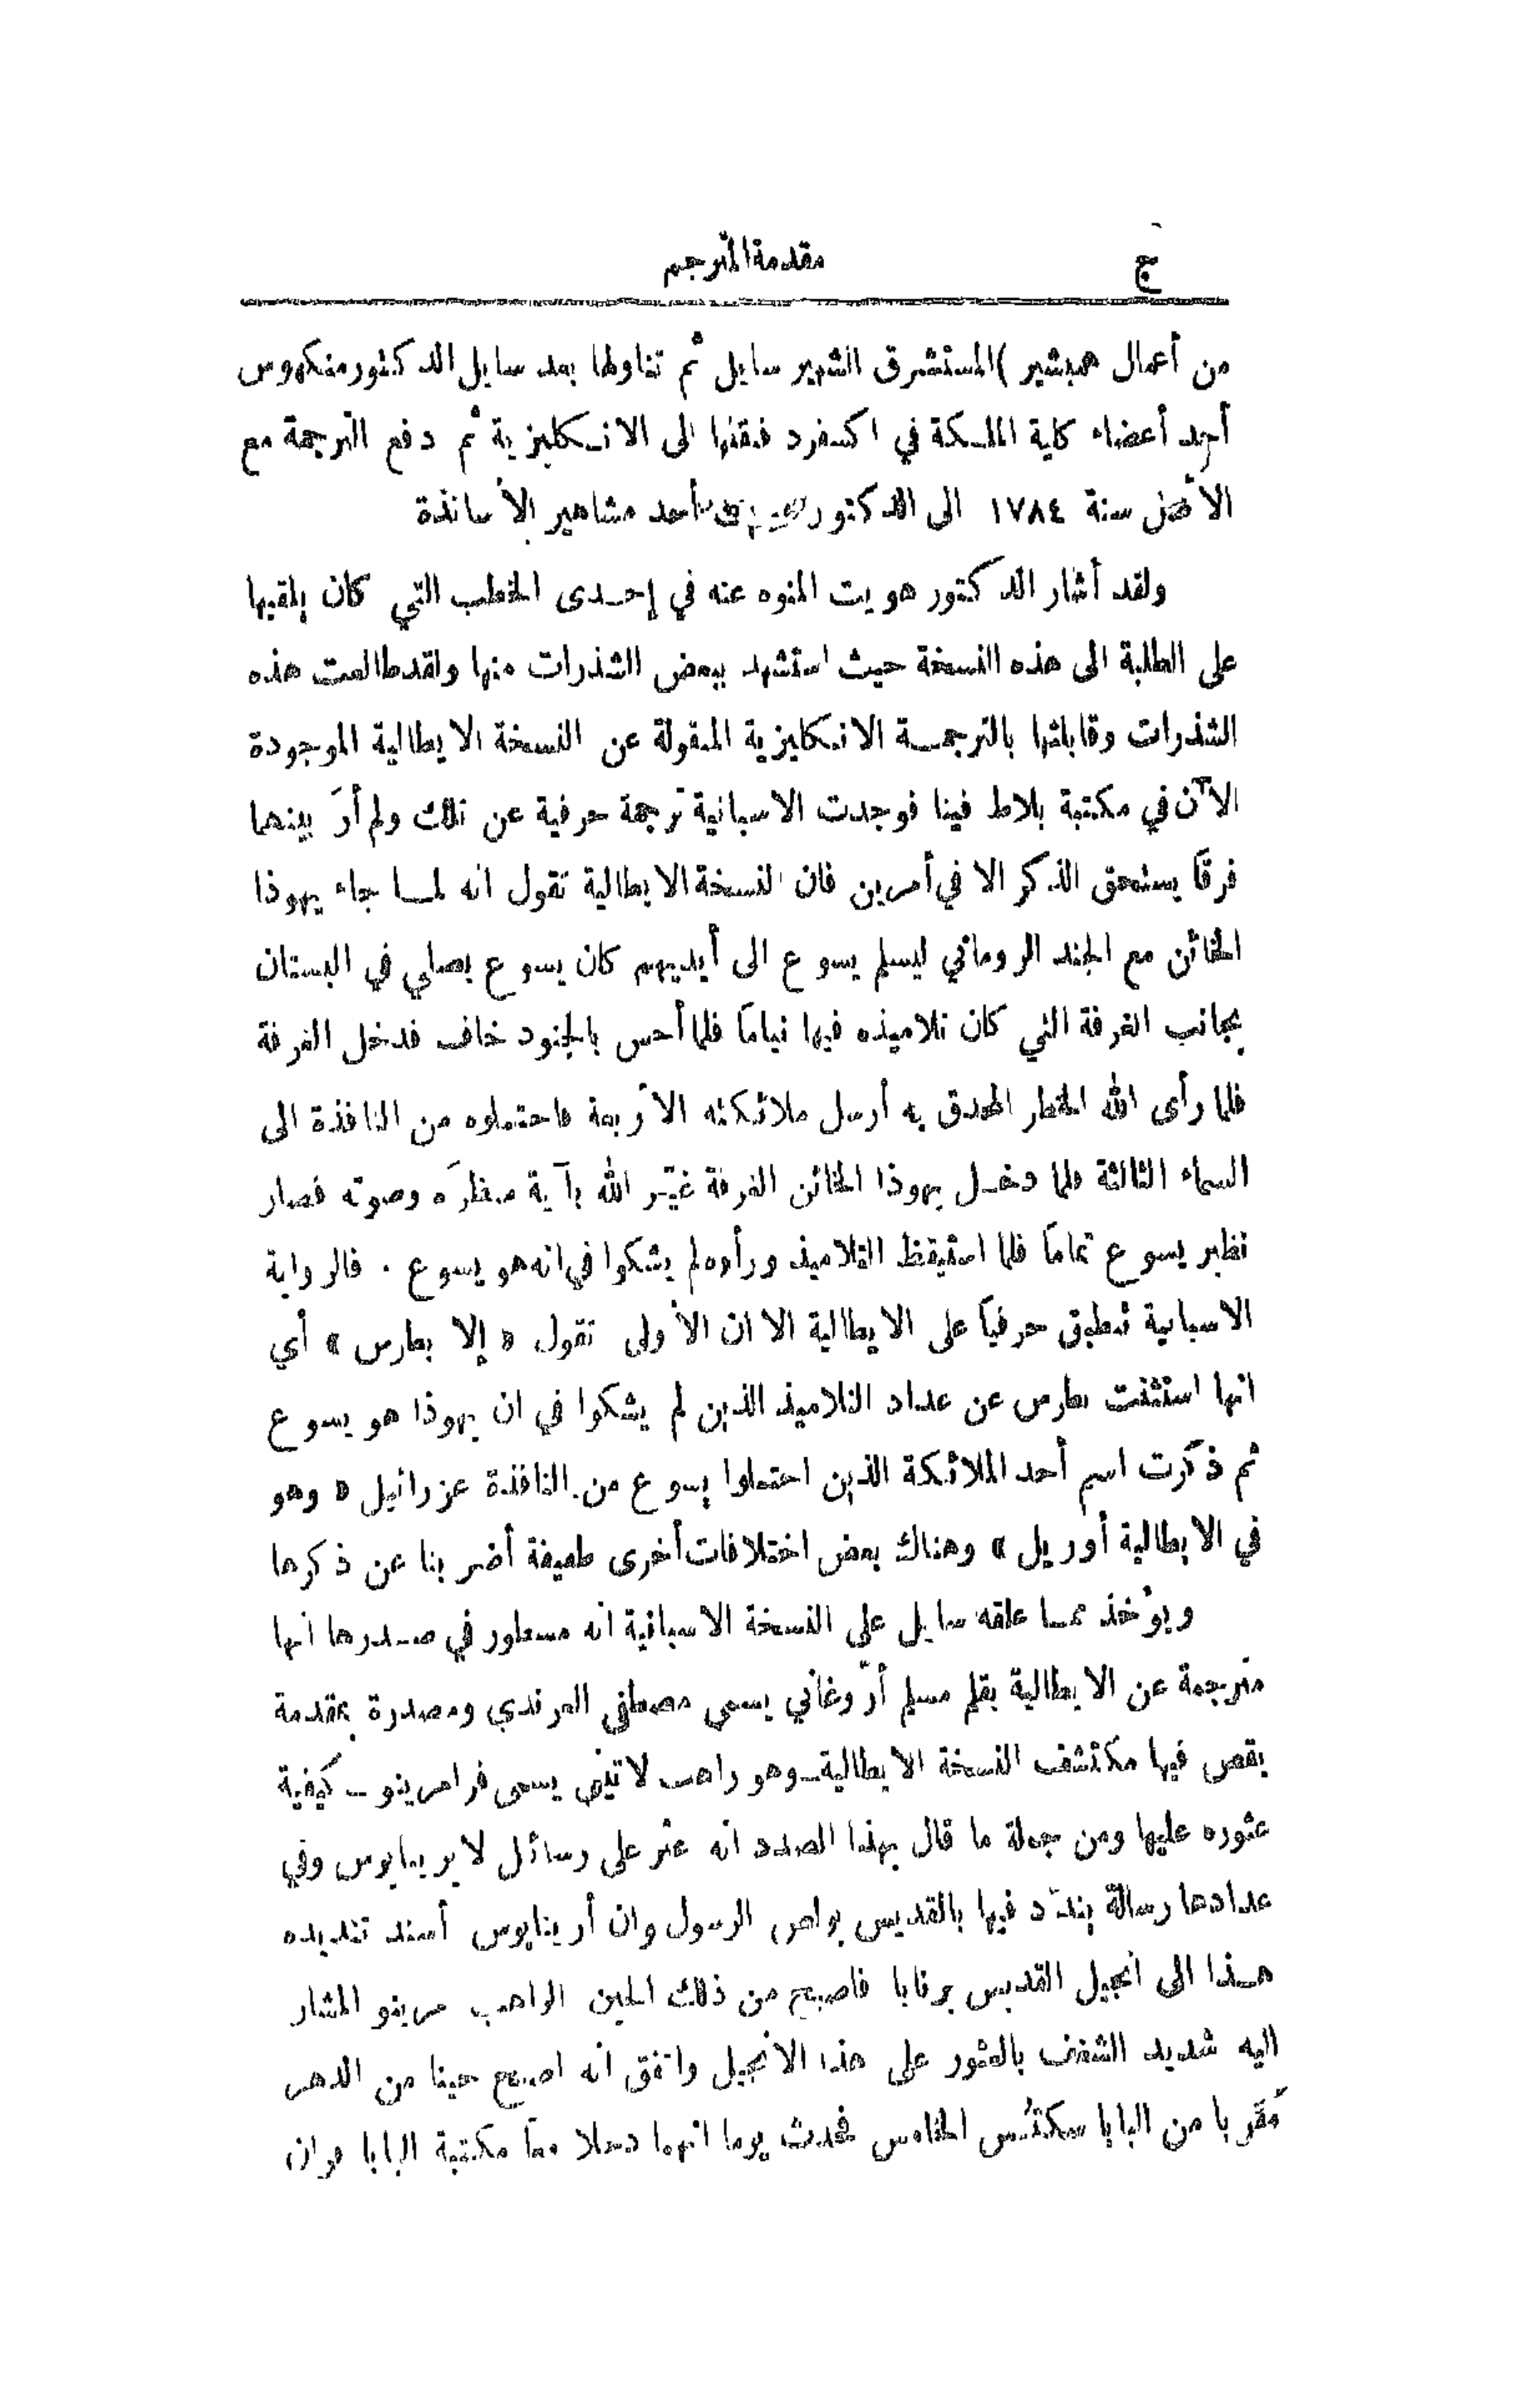 ج مقدمة المترجم
من أعمال همبشير ) المستشرق الشهير سايل ثم تناولها بعد سايل الدكتور منكهوس
أحد أعضاء كلية الملكة في اكسفرد فنقلها الى الانكليزية ثم دفع الترجمة مع
الأصل سنة ١٧٨٤ الى الدكتور أحد مشاهير الأساتذة
ولقد أشار الدكتور هويت المنوه عنه في إحدى الخطب التي كان يلقيها
على الطلبة الى هذه النسخة حيث استشهد ببعض الشذرات منها ولقد طالعت هذه
الشذرات وقابلتها بالترجمة الانكليزية المنقولة عن النسخة الايطالية الموجودة
الآن في مكتبة بلاط فينا فوجدت الاسبانية ترجمة حرفية عن تلك ولم أرَ بينهما
فرقاً يستحق الذكر الا في أمرين فان النسخة الايطالية تقول انه لما جاء يهوذا
الخائن مع الجند الروماني ليسلم يسوع الى أيديهم كان يسوع يصلي في البستان
بجانب الغرفة التي كان تلاميذه فيها نياماً فلما أحس بالجنود خاف فدخل الغرفة
فلما رأى الله الخطر المحدق به أرسل ملائكته الأربعة فاحتملوه من النافذة الى
السماء الثالثة فلما دخل يهوذا الخائن الغرفة غيّر الله بآية منظرَه وصوته فصار
نظير يسوع تماماً فلما استيقظ التلاميذ ورأوه لم يشكوا في انه هو يسوع . فالرواية
الاسبانية تنطبق حرفياً على الايطالية الا ان الأولى تقول « إلا بطرس » أي
انها استثنت بطرس عن عداد التلاميذ الذين لم يشكوا في ان يهوذا هو يسوع
ثم ذكرت اسم أحد الملائكة الذين احتملوا يسوع من النافذة عزرائيل « وهو
في الايطالية أوريل » وهناك بعض اختلافات أخرى طفيفة أضربنا عن ذكرها
ويؤخذ مما علقه سايل على النسخة الاسبانية انه مسطور في صدرها انها
مترجمة عن الايطالية بقلم مسلم أرّوغاني يسمى مصطفى العرندي ومصدرة بمقدمة
يقص فيها مكتشف النسخة الايطالية ـ وهو راهب لاتيني يسمى فرامرينو ـ كيفية
عثوره عليها ومن جملة ما قال بهذا الصدد انه عثر على رسائل لايريناوس وفي
عدادها رسالة يندّد فيها بالقديس بولص الرسول وان أريناوس أسند تنديده
هذا الى انجيل القديس برنابا فاصبح من ذلك الحين الراهب مرينو المشار
اليه شديد الشغف بالعثور على هذا الانجيل واتفق انه اصبح حينا من الدهر
مُقَرَّبا من البابا سكتس الخامس فحدث يوما انهما دخلا معاً مكتبة البابا وان